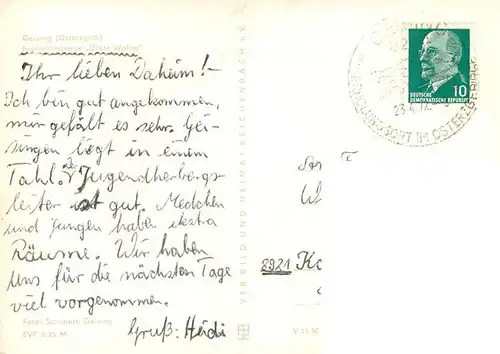 Geising (Osterzgeb)
Jugendherberge „Grete Walter"
Ihr lieben Dahüm!-
Ich bin gut angekommen,
mir gefält es sehr. Gei-
singen liegt in einem
Tahl. Jugendherbergs-
leiter ist gut. Medchen
und Jungen haben ekstra
Räume. Wir haben
uns für die nächsten Tage
viel vorgenommen.
Gruß: Heidi
Foto: Geising
EVP 0,25 M
VERBILD UND HEIMAT REICHENBACH I. V.
DEUTSCHE
DEMOKRATISCHE REPUBLIK
10
ERHOLUNGSORT IM OSTERZGEBIRGE
W
2921 Ko
V 11 50